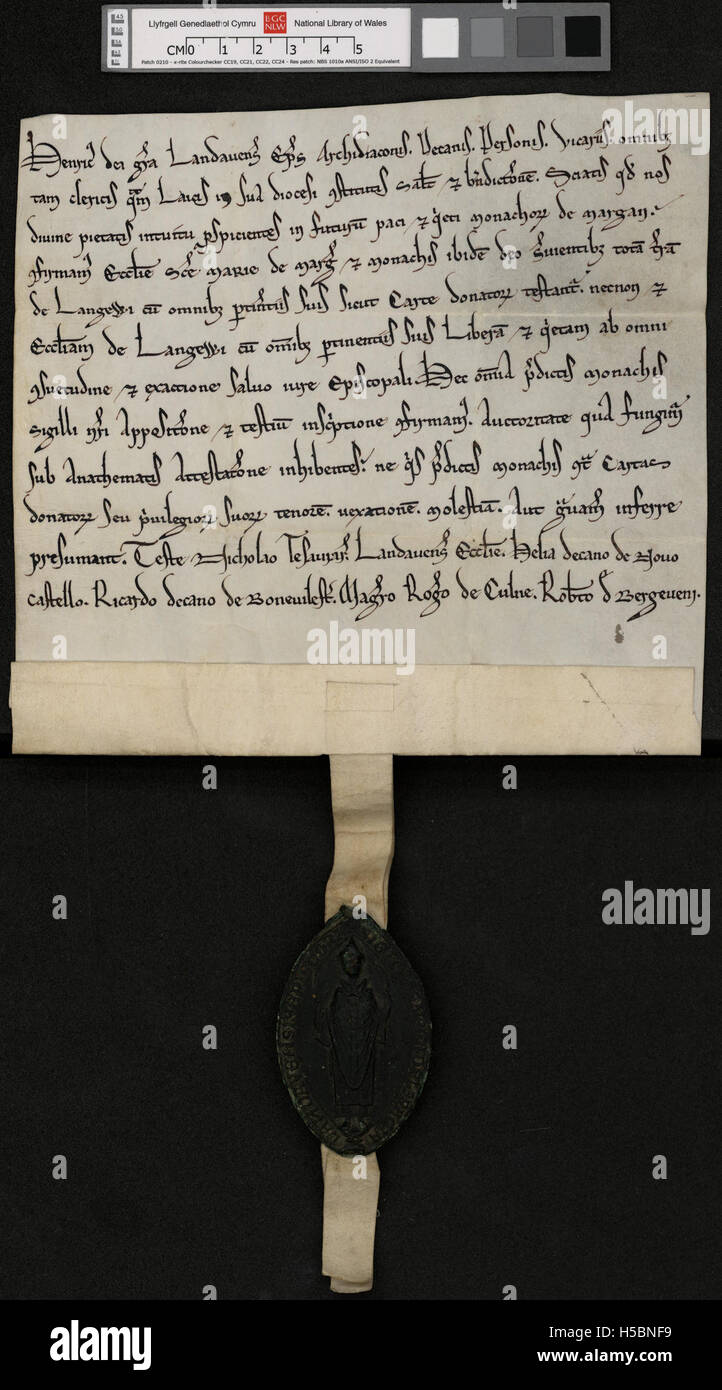 Llyfrgell Genedlaethol Cymru BGC NLW National Library of Wales
CM 0 1 2 3 4 5
Patch 0210 - x-rite Colourchecker CC19, CC21, CC22, CC24 - Res patch: NBS 1010a ANSI/ISO 2 Equivalent
Henric᷒ dei gr̄a Landavens̄ Ep̄s Archidiaconis. Decanis. Personis. Vicariis. omnibꝫ
tam clericis q̄m Laicis in sua diocesi ɔstitutis sal̄t ⁊ b̄ndict̄one. Sciatis qd̄ nos
divine pietatis intuitu ꝓspicientes in futurū paci ⁊ q̇eti monachoꝝ de margan.
ɔfirmam᷒ Ecclīe Sc̄e marie de marḡ ⁊ monachis ibidē deo s̄vientibꝫ totā t̄rā
de Langewi cū omnibꝫ ꝑtinentiis suis sicut Carte donatoꝝ testant᷑. necnon ⁊
Eccl̄iam de Langewi cū om̄ibꝫ ꝑtinentiis suis Liberā ⁊ q̇etam ab omni
ɔsuetudine ⁊ exactione salvo iure Episcopali. Hec om̄ia p̄dictis monachis
sigilli nr̄i Apposit̄one ⁊ testiū insċptione ɔfirmam᷒. Auctoritate qua fungim᷒
sub Anathematis Attestat̄one inhibentes. ne q̇s p̄dictis monachis ɔt̄ Cartas
donatoꝝ seu ṗvilegioꝝ suoꝝ tenorē. vexationē. molestiā. Aut gᷓvam̄ inferre
presumant. Teste Nicholao Tesaurar̄. Landavens̄ Ecclīe. Helia decano de Novo
castello. Ricardo decano de Bonevilest̄. Maḡro Roḡo de Culne. Rob̄to d̄ Bergeveni.
alamy
Image ID: H5BNF9
www.alamy.com